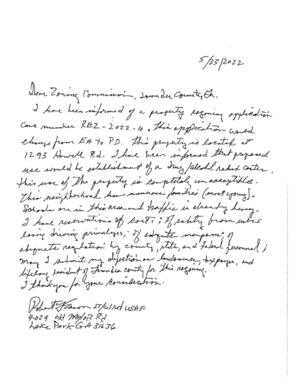 5/23/2022
Dear Zoning Commission, Lowndes County, Ga.
I have been informed of a property rezoning application
Case number REZ-2022-4. This application would
change from EA to P.D. This property is located at
1293 Howell Rd. I have been informed that proposed
use would be establishment of a drug/alcohol rehab center.
This use of the property is completely unacceptable.
This neighborhood has numerous families (very young).
Schools are in this area and traffic is already heavy.
I have reservations of cost; of safety from
losing driving privileges; of
adequate regulation by county, state, and Federal personnel;
May I submit my objection as landowner, taxpayer, and
lifelong resident of Lowndes county for this rezoning.
I thank you for your consideration.
Robert USAF
4029 Old Rd
Lake Park GA 31636